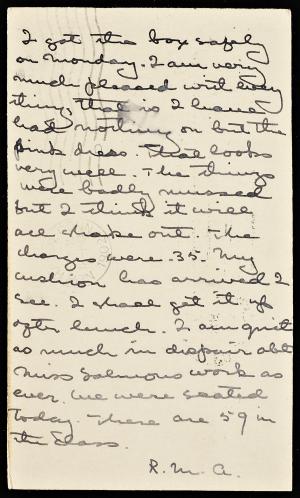 I got the box safely
on Monday. I am very
much pleased with every
thing, that is I have
had nothing on but the
pink dress. That looks
very well. The things
were badly mussed
but I think it will
all shake out. The
charges were .35. My
cushion has arrived I
see. I shall get it up
after lunch. I am quite
as much in despair abt
Miss Salmons work as
ever. We were seated
today. There are 59 in
the class.
R. M. A.